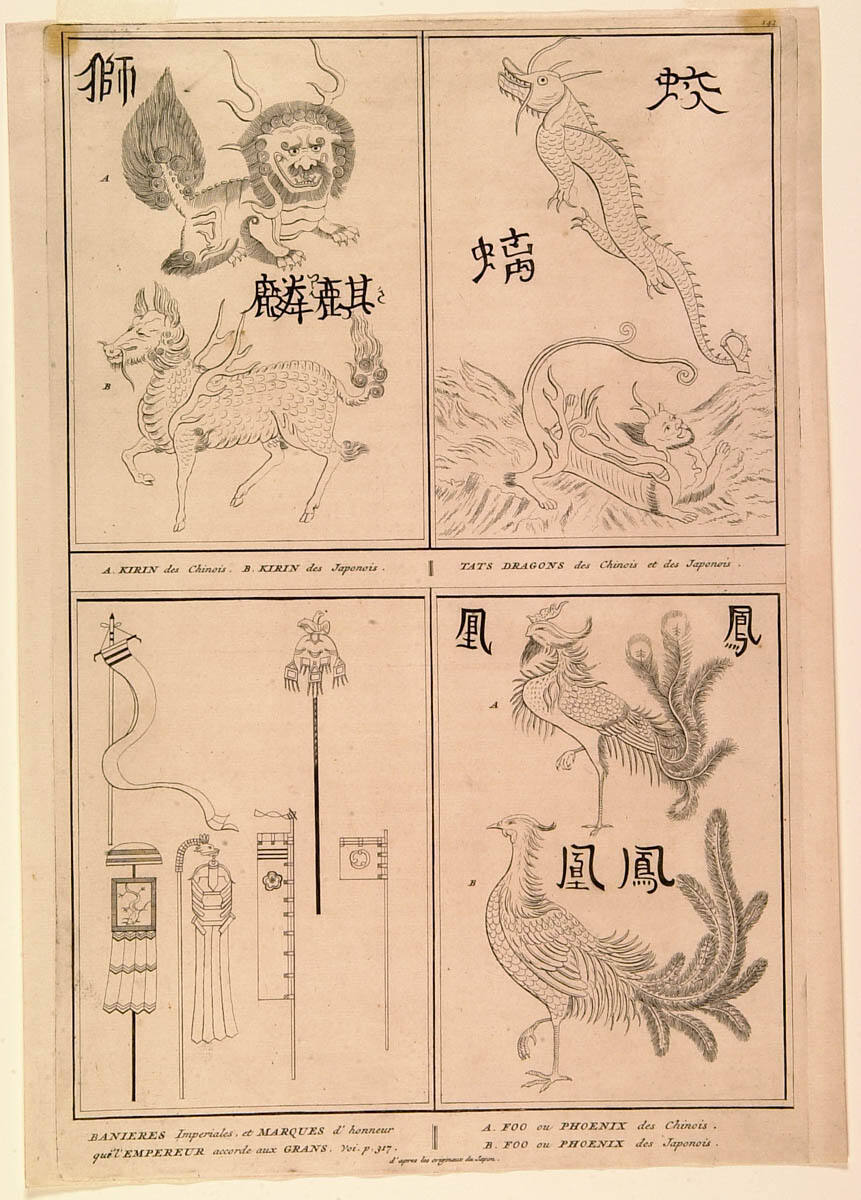 142
獅
A
麟麒
B
A. KIRIN des Chinois. B. KIRIN des Japonois.
蛟
螭
TATS DRAGONS des Chinois et des Japonois.
BANIERES Imperiales, et MARQUES d'honneur
que l'EMPEREUR accorde aux GRANS. Voi. p. 317.
凰
鳳
A
凰鳳
B
A. FOO ou PHOENIX des Chinois.
B. FOO ou PHOENIX des Japonois.
d'apres les originaux du Japon.